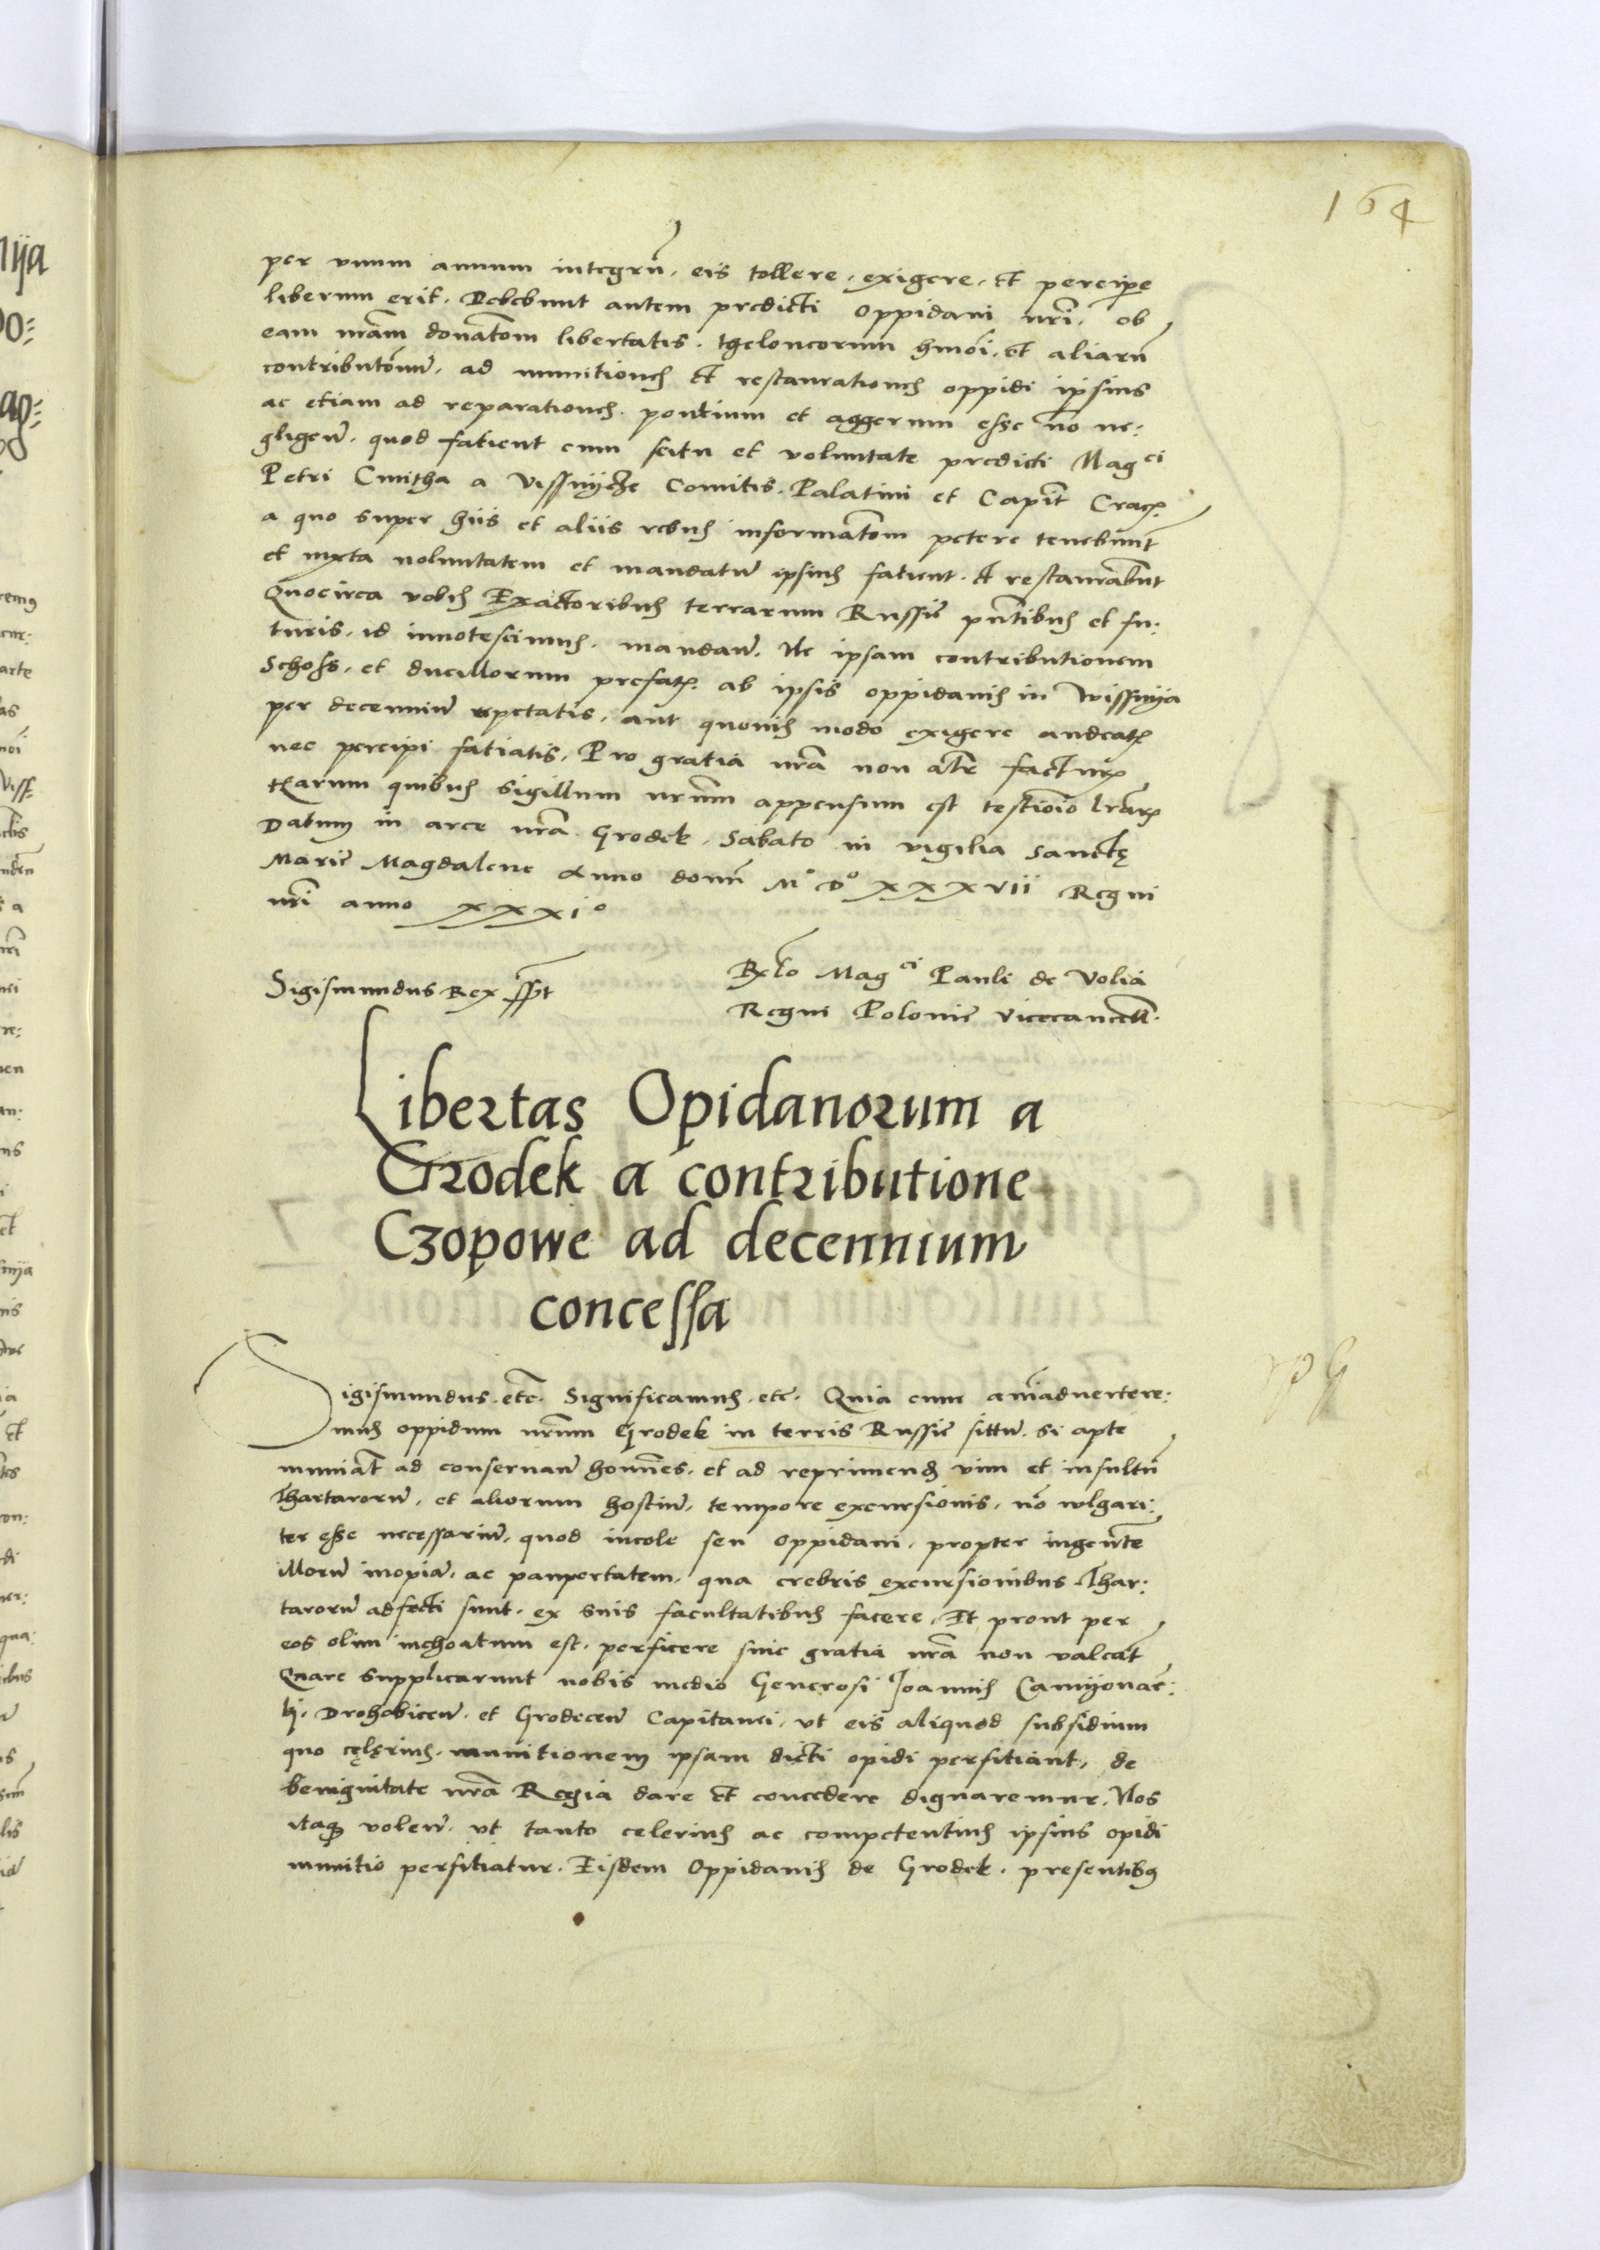 164
per vnum annum integrũ. eis tollere. exigere. et percipe
liberum erit. Debebunt autem predicti Oppidani nr̃i. ob
eam nr̃am donatõem libertatis. theloneorum hmõi. et aliarũ
contributõnũ. ad munitionem et restaurationem oppidi ipsius
ac etiam ad reparationem. pontium et aggerum esse nõ ne:
gligeñ. quod fatient cum scitu et voluntate predicti Magci
Petri Cmitha a Vissnÿcze Comitis. Palatini et Capit̃ Crac̃.
a quo super hiis et aliis rebus informatõem petere tenebunt̃
et iuxta uoluntatem et mandatũ ipsius fatient. et restaurabũt
Quocirca vobis Exactoribus terrarum Russie pñtibus et fu:
turis. id innotescimus. mandañ. Ne ipsam contributionem
Schoss. et ducillorum prefat̃. ab ipsis oppidanis in Wissnÿa
per decenniũ repetatis. aut quouis modo exigere audeat̃
nec percipi fatiatis. Pro gratia nr̃a non alr̃ factur̃
Harum quibus sigillum nr̃um appensum est testiõio lr̃ar̃
Datum in arce nr̃a Grodek. Sabato in vigilia Sanctę
Marie Magdalene Anno domi M° D° XXXVII Regni
nr̃i anno XXXI°
Sigismundus Rex sspt
Rlõ Magci Pauli de Volia
Regni Polonie Vicecancell.
Libertas Opidanorum a
Grodek a contributione
Czopowe ad decennium
concessa
Sigismundus. etc̃. Significamus. etc̃. Quia cum aĩaduertere:
mus oppidum nr̃um Grodek in terris Russie sittũ. si apte
muniat̃ ad conseruañ homĩes. et ad reprimend vim et insultũ
Thartarorũ. et aliorum hostiũ. tempore excursionis. nõ wlgari:
ter esse necessariũ. quod incole seu Oppidani. propter ingente
illorũ inopiã. ac paupertatem. qua crebris excursionibus Thar:
tarorũ adfecti sunt. ex suis facultatibus facere. Et prout per
eos olim inchoatum est. perficere sine gratia nr̃a non valeat̃
Quare supplicarunt nobis medio Generosi Joannis Camÿonac:
kj. Drohobiceñ. et Grodeceñ Capitanei. vt eis aliquod subsidium
quo cęlęrius. munitionem ipsam dicti opidi perfitiant. de
benignitate nr̃a Regia dare et concedere dignaremur. Nos
itaq volen̄. vt tanto celerius ac competentius ipsius opidi
munitio perfitiatur. Eisdem Oppidanis de Grodek. presentibus